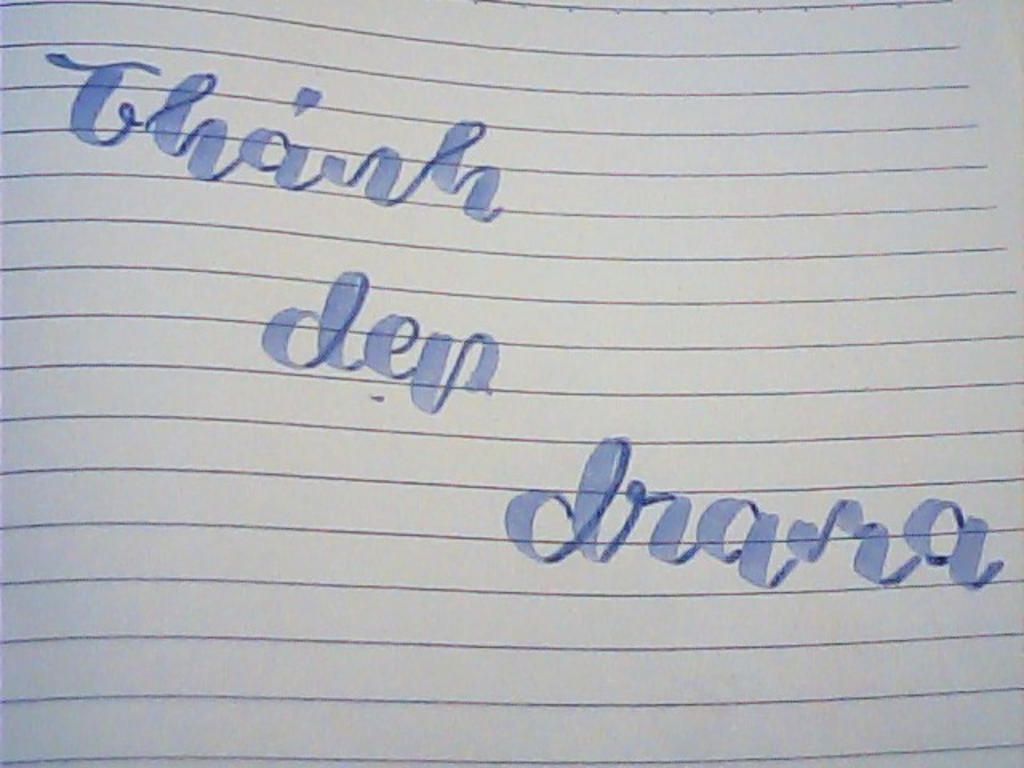 Thánh
dẹp
drama